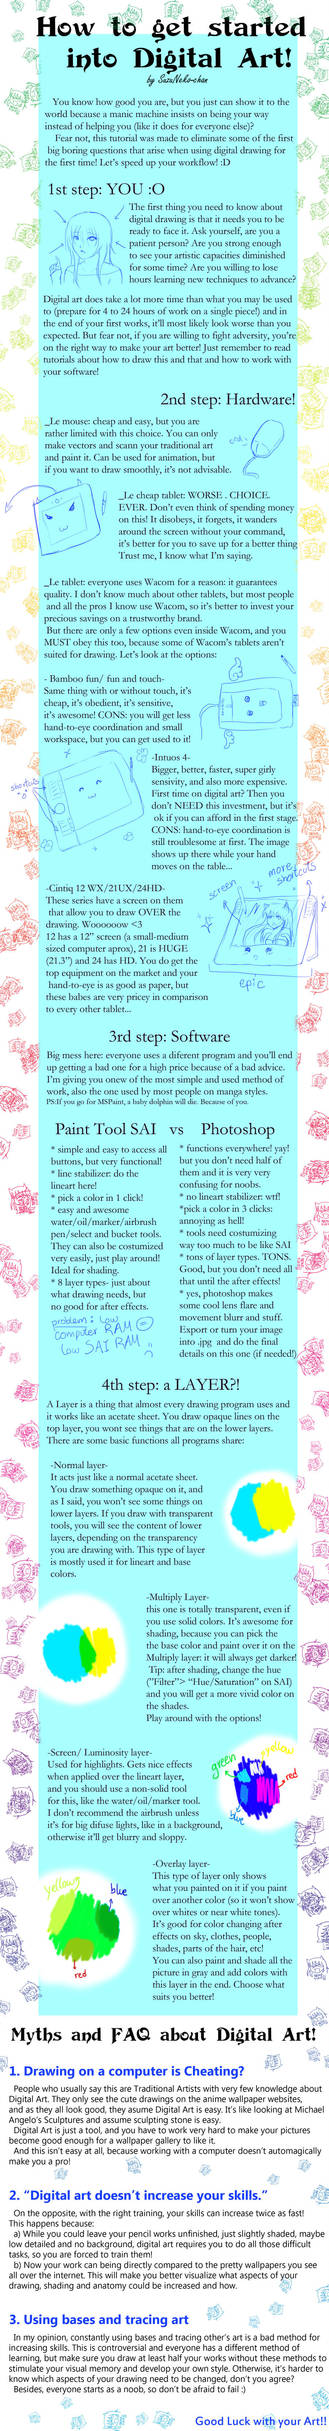 How to get started
into Digital Art!
by SuzuNeko-chan
You know how good you are, but you just can show it to the
world because a manic machine insists on being your way
instead of helping you (like it does for everyone else)?
Fear not, this tutorial was made to eliminate some of the first
big boring questions that arise when using digital drawing for
the first time! Let's speed up your workflow! :D
1st step: YOU :O
The first thing you need to know about
digital drawing is that it needs you to be
ready to face it. Ask yourself, are you a
patient person? Are you strong enough
to see your artistic capacities diminished
for some time? Are you willing to lose
hours learning new techniques to advance?
Digital art does take a lot more time than what you may be used
to (prepare for 4 to 24 hours of work on a single piece!) and in
the end of your first works, it'll most likely look worse than you
expected. But fear not, if you are willing to fight adversity, you're
on the right way to make your art better! Just remember to read
tutorials about how to draw this and that and how to work with
your software!
2nd step: Hardware!
_Le mouse: cheap and easy, but you are
rather limited with this choice. You can only
make vectors and scann your traditional art
and paint it. Can be used for animation, but
if you want to draw smoothly, it's not advisable.
_Le cheap tablet: WORSE . CHOICE.
EVER. Don't even think of spending money
on this! It disobeys, it forgets, it wanders
around the screen without your command,
it's better for you to save up for a better thing
Trust me, I know what I'm saying.
_Le tablet: everyone uses Wacom for a reason: it guarantees
quality. I don't know much about other tablets, but most people
and all the pros I know use Wacom, so it's better to invest your
precious savings on a trustworthy brand.
But there are only a few options even inside Wacom, and you
MUST obey this too, because some of Wacom's tablets aren't
suited for drawing. Let's look at the options:
- Bamboo fun/ fun and touch-
Same thing with or without touch, it's
cheap, it's obedient, it's sensitive,
it's awesome! CONS: you will get less
hand-to-eye coordination and small
workspace, but you can get used to it!
shortcuts
-Intuos 4-
Bigger, better, faster, super girly
sensivity, and also more expensive.
First time on digital art? Then you
don't NEED this investment, but it's
ok if you can afford in the first stage.
CONS: hand-to-eye coordination is
still troublesome at first. The image
shows up there while your hand
moves on the table...
-Cintiq 12 WX/21UX/24HD-
These series have a screen on them
that allow you to draw OVER the
drawing. Woooooow <3
12 has a 12" screen (a small-medium
sized computer aprox), 21 is HUGE
(21.3") and 24 has HD. You do get the
top equipment on the market and your
hand-to-eye is as good as paper, but
these babes are very pricey in comparison
to every other tablet...
screen
more
shortcuts
epic
3rd step: Software
Big mess here: everyone uses a diferent program and you'll end
up getting a bad one for a high price because of a bad advice.
I'm giving you onew of the most simple and used method of
work, also the one used by most people on manga styles.
PS:If you go for MSPaint, a baby dolphin will die. Because of you.
Paint Tool SAI vs Photoshop
* simple and easy to access all
buttons, but very functional!
* line stabilizer: do the
lineart here!
* pick a color in 1 click!
* easy and awesome
water/oil/marker/airbrush
pen/select and bucket tools.
They can also be costumized
very easily, just play around!
Ideal for shading.
* 8 layer types- just about
what drawing needs, but
no good for after effects.
problem: low
computer RAM =
low SAI RAM
* functions everywhere! yay!
but you don't need half of
them and it is very very
confusing for noobs.
* no lineart stabilizer: wtf!
*pick a color in 3 clicks:
annoying as hell!
* tools need costumizing
way too much to be like SAI
* tons of layer types. TONS.
Good, but you don't need all
that until the after effects!
* yes, photoshop makes
some cool lens flare and
movement blurr and stuff.
Export or turn your image
into .jpg and do the final
details on this one (if needed!)
4th step: a LAYER?!
A Layer is a thing that almost every drawing program uses and
it works like an acetate sheet. You draw opaque lines on the
top layer, you wont see things that are on the lower layers.
There are some basic functions all programs share:
-Normal layer-
It acts just like a normal acetate sheet.
You draw something opaque on it, and
as I said, you won't see some things on
lower layers. If you draw with transparent
tools, you will see the content of lower
layers, depending on the transparency
you are drawing with. This type of layer
is mostly used it for lineart and base
colors.
-Multiply Layer-
this one is totally transparent, even if
you use solid colors. It's awesome for
shading, because you can pick the
the base color and paint over it on the
Multiply layer: it will always get darker!
Tip: after shading, change the hue
("Filter"> "Hue/Saturation" on SAI)
and you will get a more vivid color on
the shades.
Play around with the options!
-Screen/ Luminosity layer-
Used for highlights. Gets nice effects
when applied over the lineart layer,
and you should use a non-solid tool
for this, like the water/oil/marker tool.
I don't recommend the airbrush unless
it's for big difuse lights, like in a background,
otherwise it'll get blurry and sloppy.
green
yellow
red
blue
-Overlay layer-
This type of layer only shows
what you painted on it if you paint
over another color (so it won't show
over whites or near white tones).
It's good for color changing after
effects on sky, clothes, people,
shades, parts of the hair, etc!
You can also paint and shade all the
picture in gray and add colors with
this layer in the end. Choose what
suits you better!
yellow
blue
red
Myths and FAQ about Digital Art!
1. Drawing on a computer is Cheating?
People who usually say this are Traditional Artists with very few knowledge about
Digital Art. They only see the cute drawings on the anime wallpaper websites,
and as they all look good, they asume Digital Art is easy. It's like looking at Michael
Angelo's Sculptures and assume sculpting stone is easy.
Digital Art is just a tool, and you have to work very hard to make your pictures
become good enough for a wallpaper gallery to like it.
And this isn't easy at all, because working with a computer doesn't automagically
make you a pro!
2. "Digital art doesn't increase your skills."
On the opposite, with the right training, your skills can increase twice as fast!
This happens because:
a) While you could leave your pencil works unfinished, just slightly shaded, maybe
low detailed and no background, digital art requires you to do all those difficult
tasks, so you are forced to train them!
b) Now your work can being directly compared to the pretty wallpapers you see
all over the internet. This will make you better visualize what aspects of your
drawing, shading and anatomy could be increased and how.
3. Using bases and tracing art
In my opinion, constantly using bases and tracing other's art is a bad method for
increasing skills. This is controversial and everyone has a different method of
learning, but make sure you draw at least half your works without these methods to
stimulate your visual memory and develop your own style. Otherwise, it's harder to
know which aspects of your drawing need to be changed, don't you agree?
Besides, everyone starts as a noob, so don't be afraid to fail :)
Good Luck with your Art!!